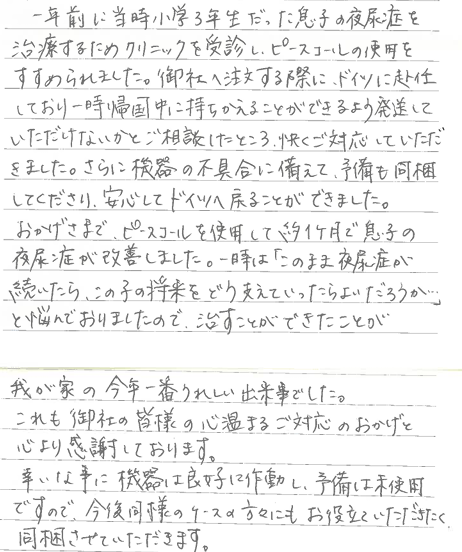 一年前に当時小学3年生だった息子の夜尿症を
治療するためクリニックを受診し、ピースコールの使用を
すすめられました。御社へ注文する際に、ドイツに赴任
しており一時帰国中に持ちかえることができるよう発送して
いただけないかとご相談したところ、快くご対応していただ
きました。さらに機器の不具合に備えて、予備も同梱
してくださり、安心してドイツへ戻ることができました。
おかげさまで、ピースコールを使用して約1ヶ月で息子の
夜尿症が改善しました。一時は「このまま夜尿症が
続いたら、この子の将来をどう支えていったらよいだろうか…」
と悩んでおりましたので、治すことができたことが
我が家の今年一番うれしい出来事でした。
これも御社の皆様の心温まるご対応のおかげと
心より感謝しております。
幸いな事に機器は良好に作動し、予備は未使用
ですので、今後同様のケースの方々にもお役立ていただきたく
同梱させていただきます。